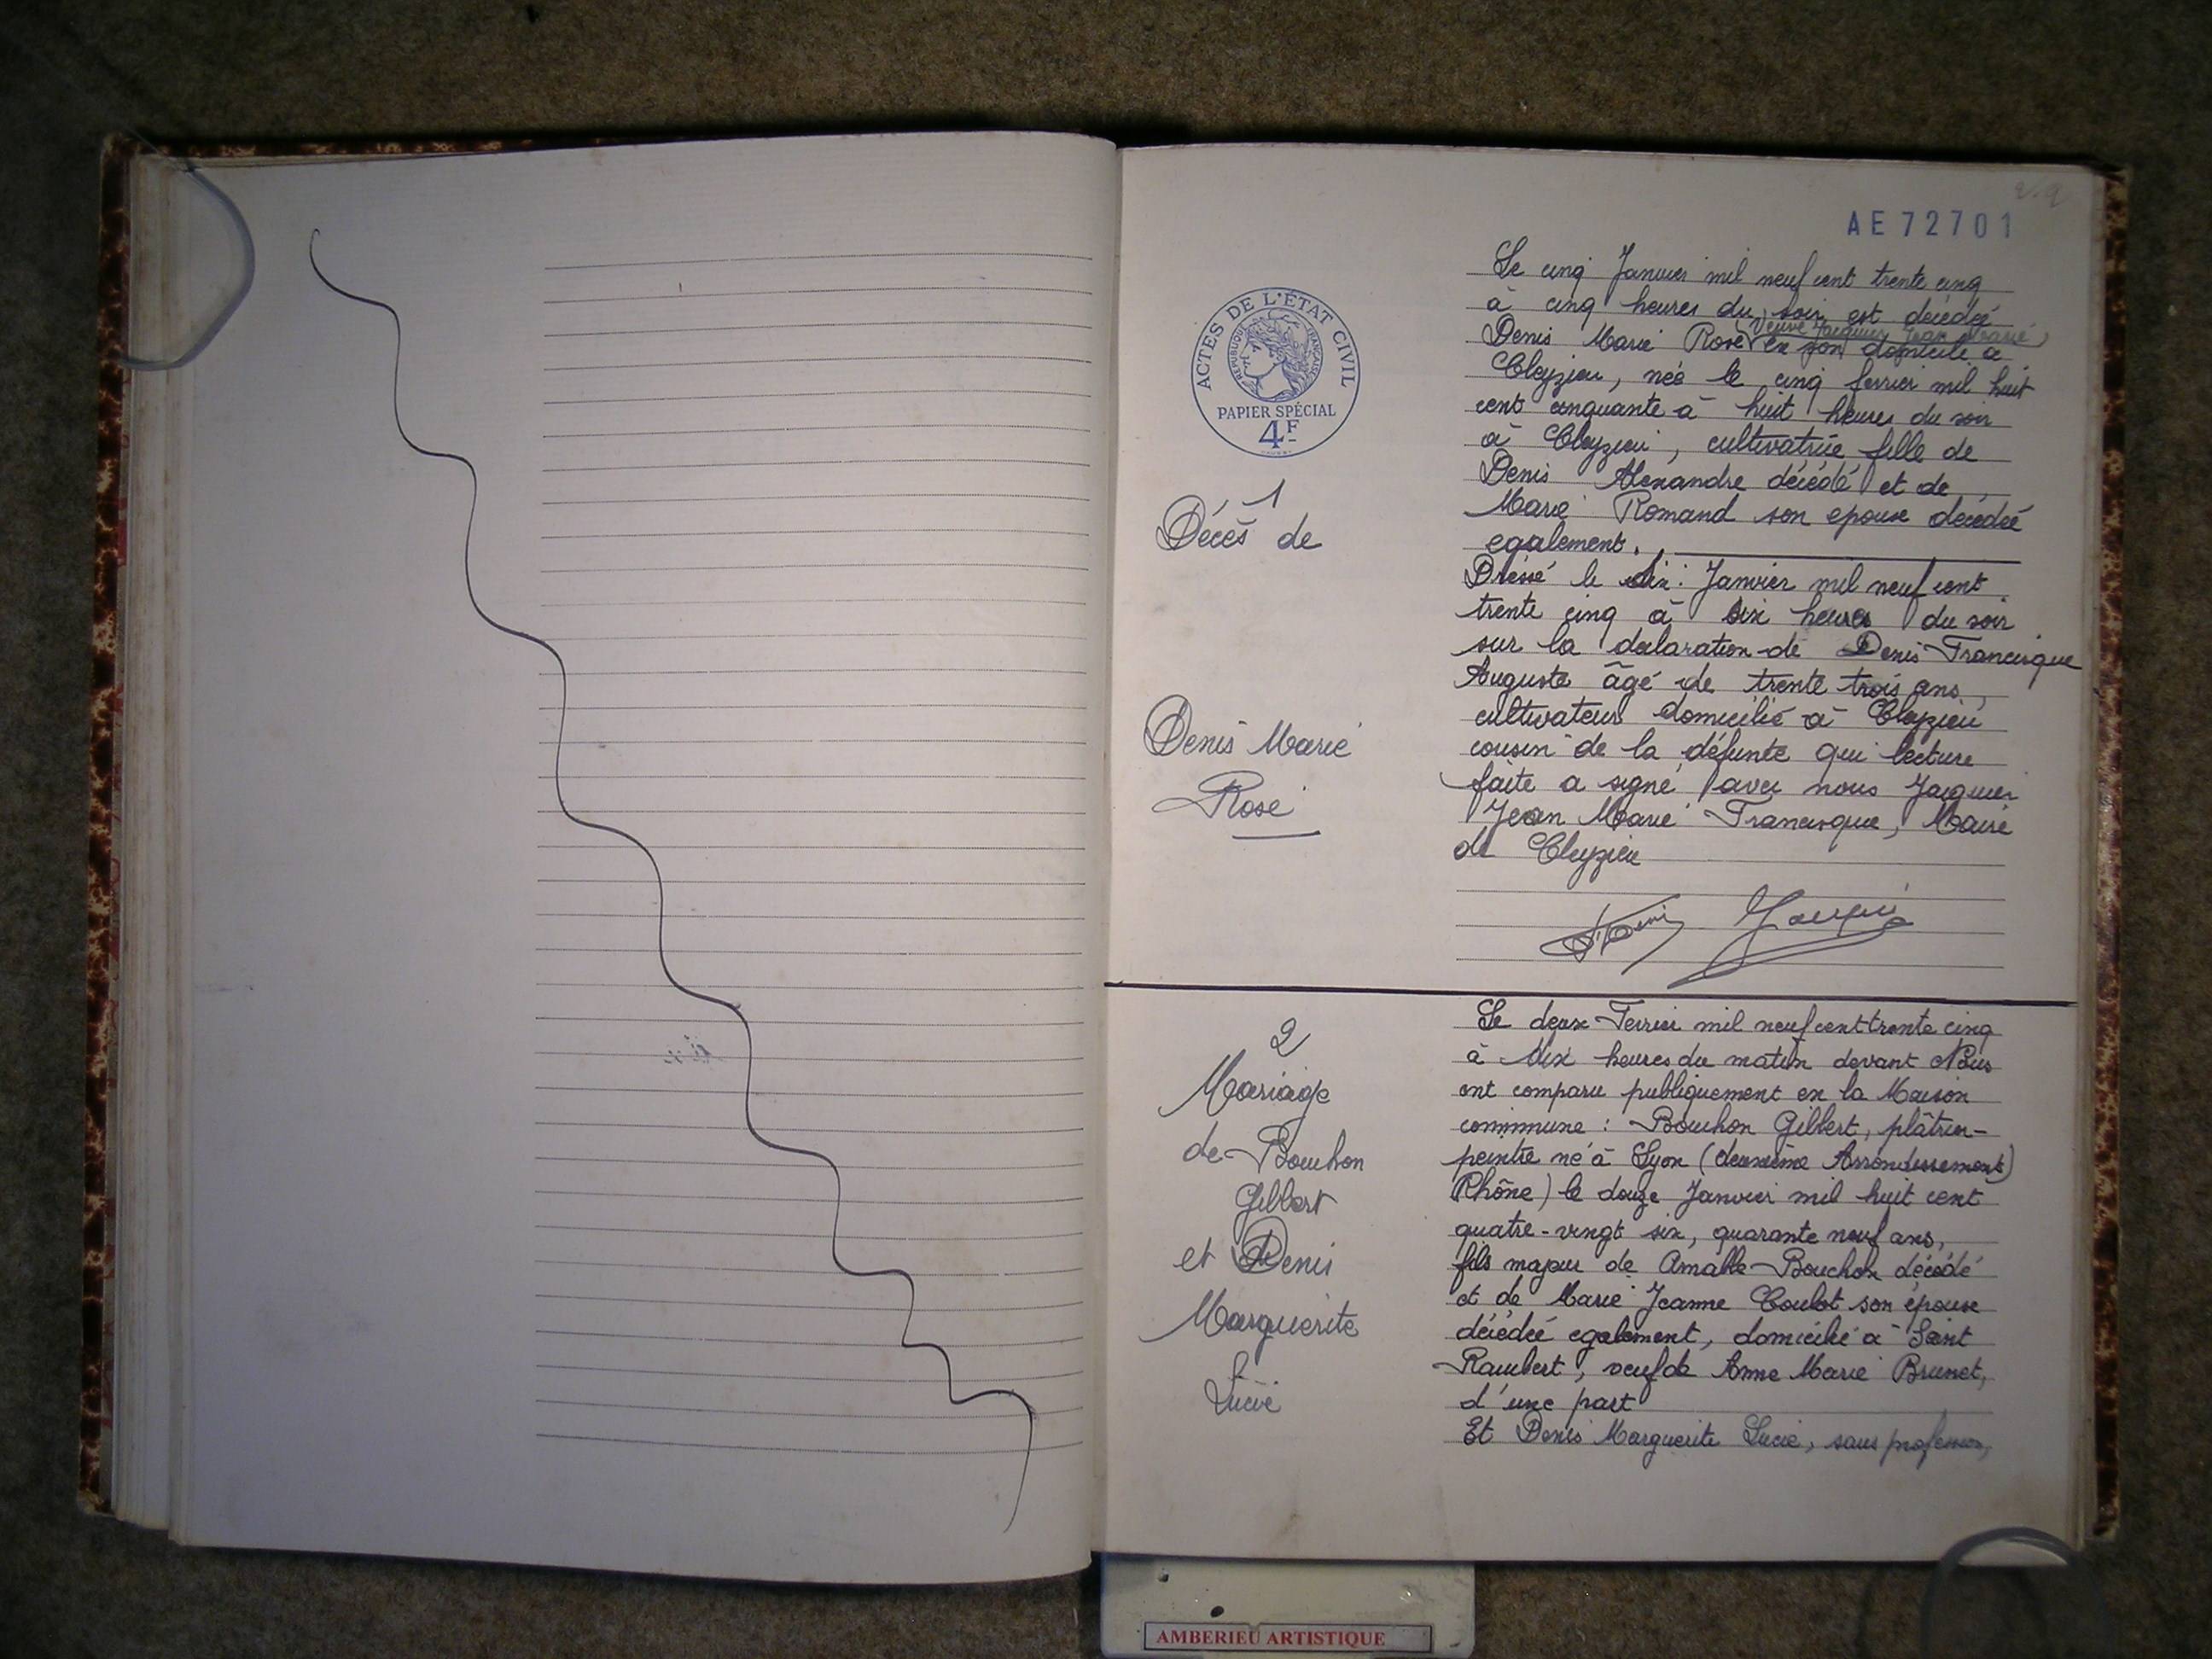 AE72701
ACTES DE L'ÉTAT CIVIL
RÉPUBLIQUE FRANÇAISE
PAPIER SPÉCIAL
4F
1
Décès de
Denis Marie
Rose
Le cinq Janvier mil neuf cent trente cinq
à cinq heures du soir est décédée
Veuve Jacquier Jean Marie
Denis Marie Rose en son domicile à
Cleyzieu, née le cinq fevrier mil huit
cent cinquante à huit heures du soir
à Cleyzieu, cultivatrice fille de
Denis Alexandre décédé et de
Marie Romand son epouse décédée
egalement.
Dressé le dix Janvier mil neuf cent
trente cinq à six heures du soir
sur la declaration de Denis Francisque
Auguste âgé de trente trois ans,
cultivateur domicilié à Cleyzieu
cousin de la défunte qui lecture
faite a signé avec nous Jacquier
Jean Marie Francisque, Maire
de Cleyzieu
2
Mariage
de Bouchon
Gilbert
et Denis
Marguerite
Lucie
Le deux Fevrier mil neuf cent trente cinq
à dix heures du matin devant Nous
ont comparu publiquement en la Maison
commune : Bouchon Gilbert, plâtrier-
peintre né à Lyon (deuxième Arrondissement)
Rhône) le douze Janvier mil huit cent
quatre-vingt six, quarante neuf ans,
fils majeur de Amable Bouchon décédé
et de Marie Jeanne Coulot son épouse
décédée egalement, domicilié à Saint
Rambert, veuf de Anne Marie Brunet,
d'une part
Et Denis Marguerite Lucie, sans profession,
AMBERIEU ARTISTIQUE